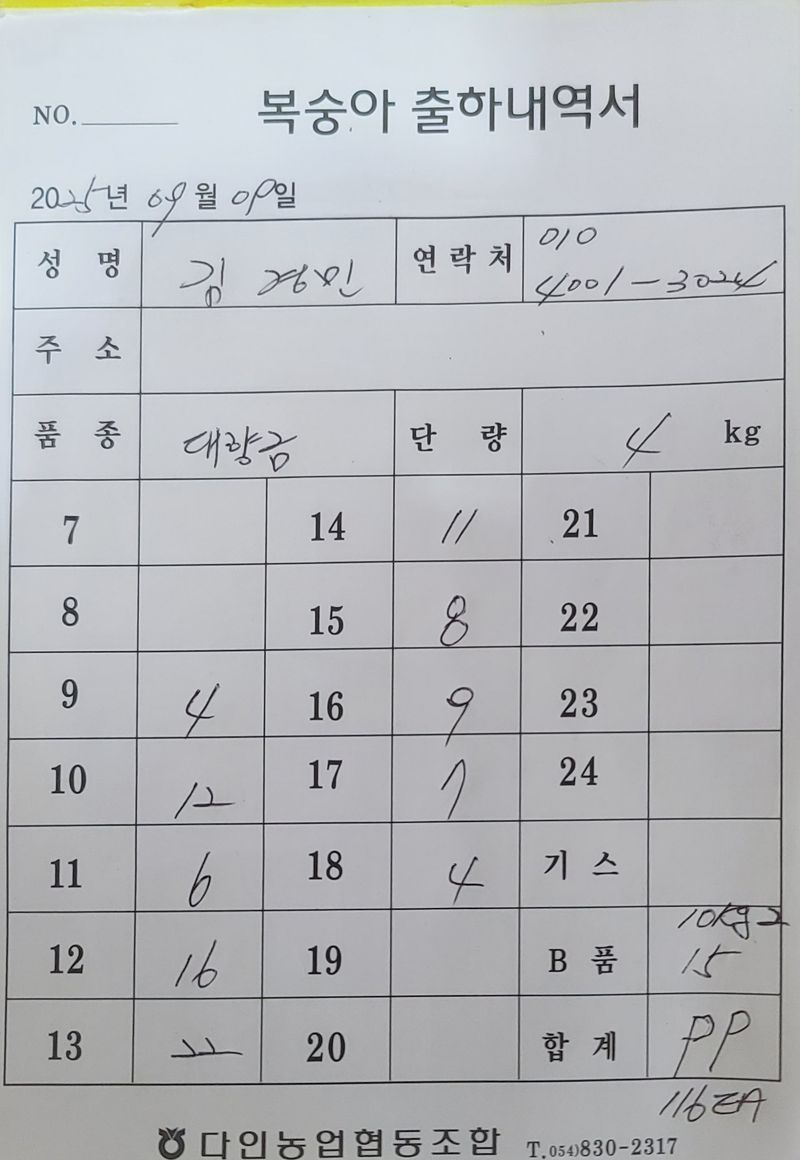 NO.
복숭아 출하내역서
2025년 09월 09일
성 명 김 경민 연락처 010
4001-3024
주 소
품 종 대향금 단 량 4 kg
7 14 11 21
8 15 8 22
9 4 16 9 23
10 12 17 7 24
11 6 18 4 기 스
10kg 2
12 16 19 B 품 15
13 22 20 합 계 99
116EA
다인농업협동조합 T.054)830-2317